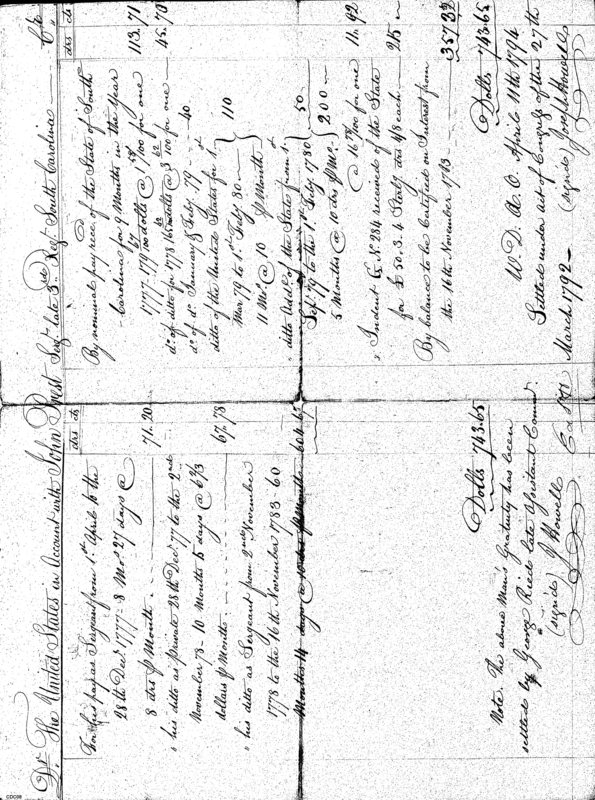 Dr. The United States in Account with John Priest Sergt. late 3rd Regt. South Carolina Cr.
drs cts
For his pay as Sergeant from 1st. April to the
28th Decr. 1777 - 8 Mos. 27 days @
8 drs ⅌ Month 71.20
" his ditto as private 28th Decr. 77 to the 2nd
November 78 - 10 Months 5 days @ 6 2/3
dollars ⅌ Month 67.78
" his ditto as Sergeant from 2nd November
1778 to the 16th November 1783 60
Months 14 days @ 10 drs ⅌ Month 604.67
Dolls 743.65
Note. The above Man's Gratuity has been
settled by George Reid late Assistant Commr.
(signed) J Howell
drs cts
By nominal pay recd. of the State of South
Carolina for 9 Months in the Year
1777 - 179 67/100 dolls @ 1 58/100 for one 113.71
do. of ditto for 1778 165 dolls @ 3 62/100 for one 45.70
do. of do. January & Feby 79 - 40
ditto of the United States for 1.
Mar 79 to 1st. Feby 80
11 Mos. @ 10 ⅌ Month 110
ditto Addl. of the State from 1.
Sep. 79 to the 1st Feby 1780 50
5 Months @ 10 drs ⅌ Mo. 200
@ 16 /100 for one 11.92
" Indent No. 284 received of the State
for £ 50.3.4 Sterlg drs 4/8 each 215
By balance to be Certified on Interest from
the 16th November 1783 357.32
Dolls 743.65
W. D. A. O. April 11th 1794
Settled under act of Congress of the 27th
March 1792 - (signed) Joseph Howell
COC08